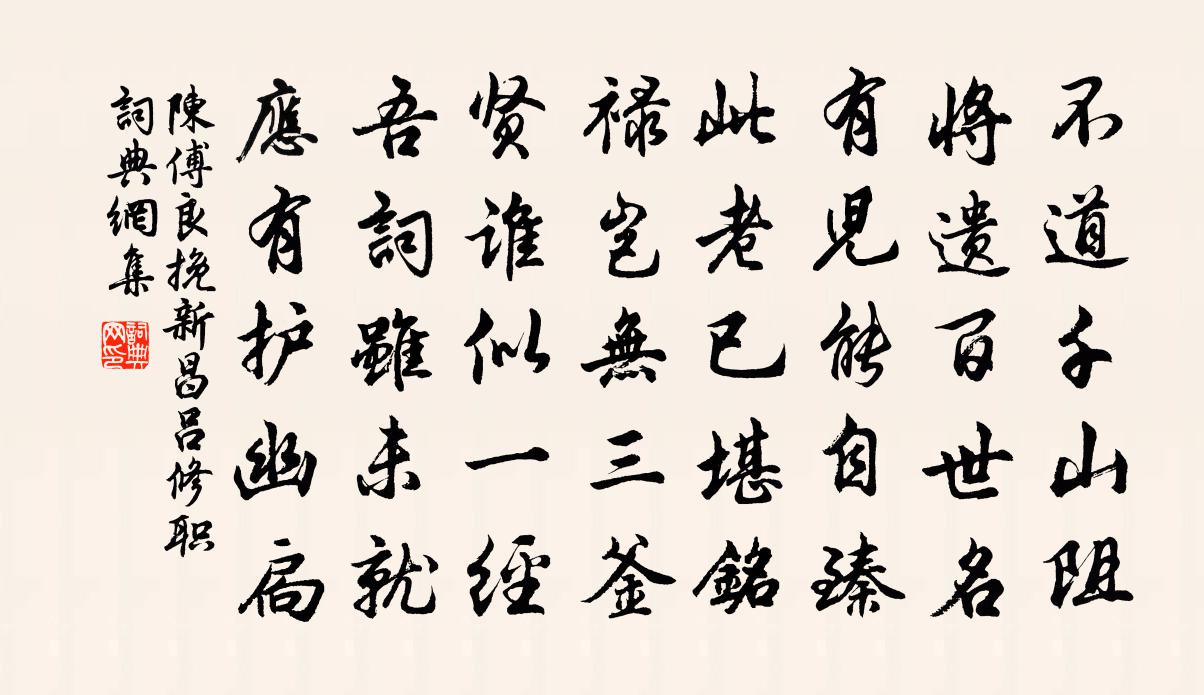 不道千山阻
將遗百世名
有児能自臻
此老已堪銘
禄岂無三釜
贤谁似一經
吾詞雖未就
應有护幽扃
陳傅良挽新昌吕修职
詞典網集
詞典网印